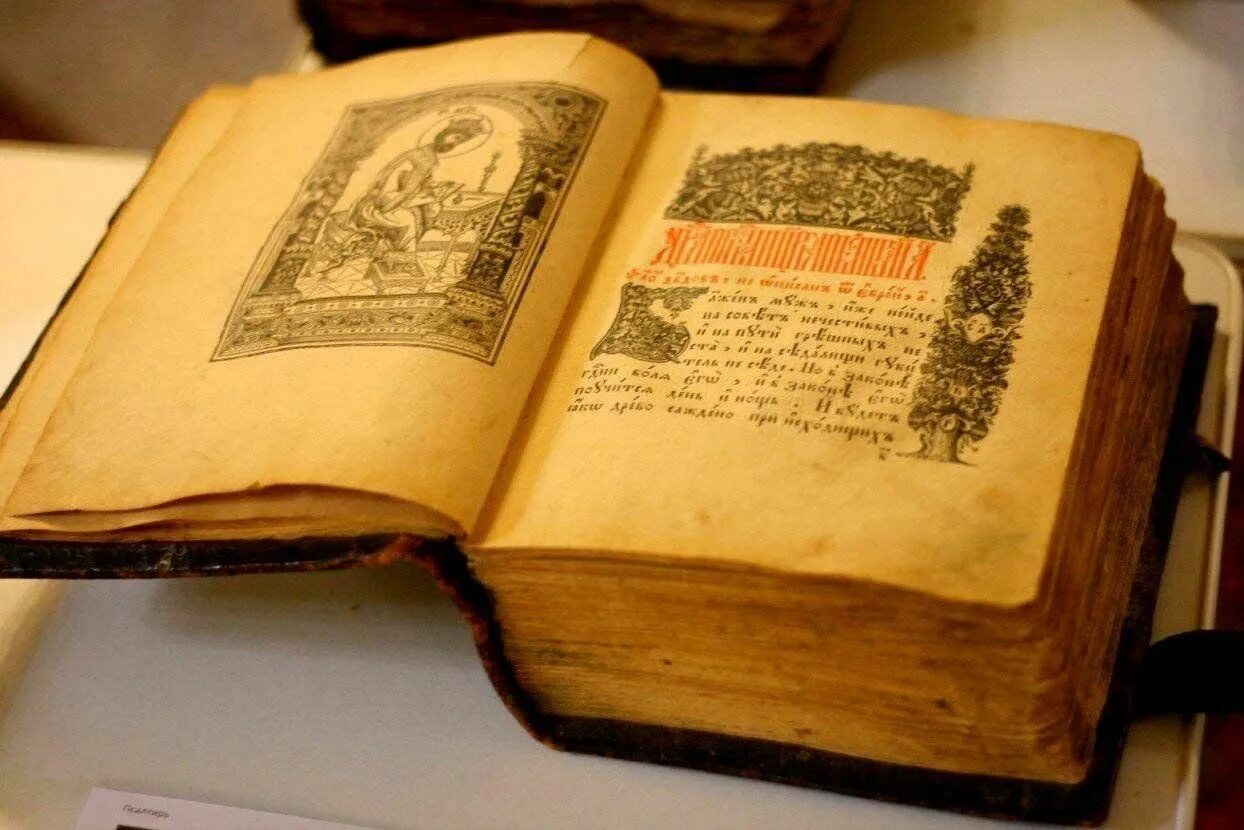 не ѡ҆пи́санъ ѿ є҆вре́й, а҃.
Бл҃же́нъ мꙋ́жъ, и҆́же неи҆́де
на совѣ́тъ нечести́выхъ,
и҆ на пꙋти́ грѣ́шныхъ не
ста̀, и҆ на сѣда́лищи гꙋби́
тель не сѣ́де. Но в̾ зако́нѣ
гдⷭ҇ни во́лѧ є҆гѡ̀, и҆ в̾ зако́нѣ є҆гѡ̀
поꙋчи́тсѧ де́нь и҆ но́щь. И҆ бꙋ́детъ
ꙗ҆́кѡ дре́во сажде́но при и҆схо́дищихъ
Псалтирь